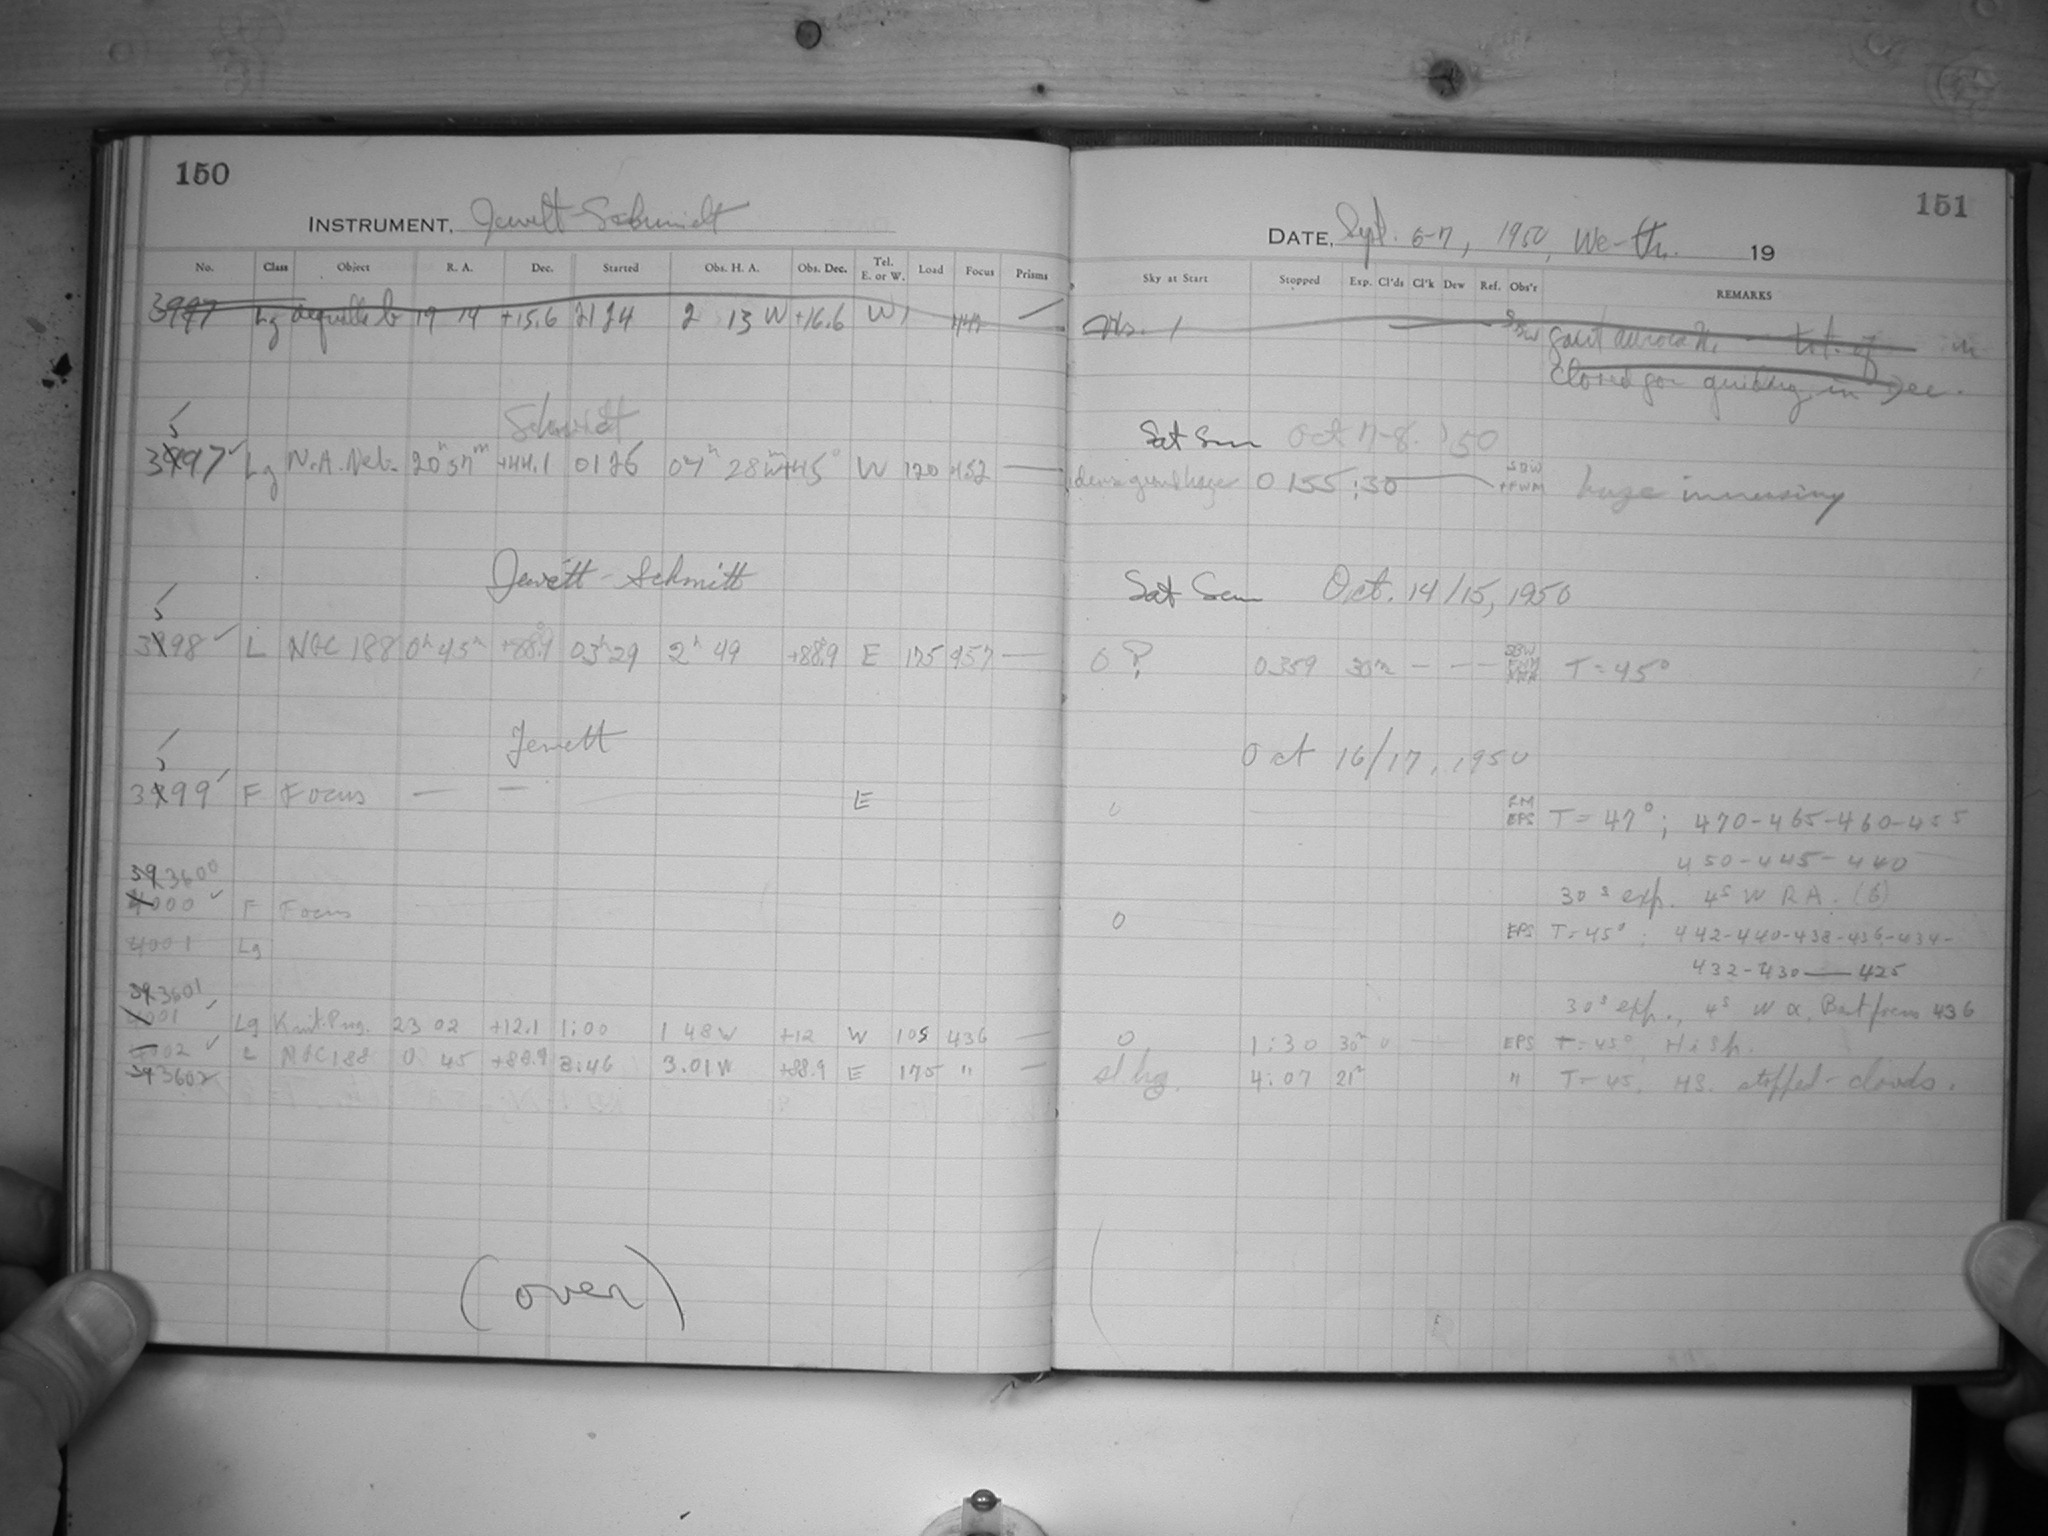 150
INSTRUMENT. Jewett-Schmidt
No. Class Object R. A. Dec. Started Obs. H. A. Obs. Dec. Tel. E. or W. Load Focus Prisms
3997 Lg 19 14 +15.6 2124 2 13 W +16.6 W
Schmidt
3997 Lg N.A. Neb. 20h 57m +44.1 0126 04h 28m W +45° W 120 452 —
Jewett-Schmitt
3998 L NGC 188 0h 45m +88.9 03h 29 2h 49 +88.9 E 175 457 —
Jewett
3999 F Focus — — E
393600
4000 F Focus
4001 Lg
393601
4001 Lg 23 02 +12.1 1:00 1 48 W +12 W 105 436 —
4002 L NGC 188 0 45 +88.9 3:46 3.01 W +88.9 E 175 " —
393602
(over)
151
DATE, Sept. 6-7, 1950, We-Th. 19
Sky at Start Stopped Exp. Cl'ds Cl'k Dew Ref. Obs'r REMARKS
closed for in Dec.
Sat Sun Oct 7-8. '50
dense ground haze 0155 :30 SBW haze increasing
Sat Sun Oct. 14/15, 1950
0 ? 0359 30m — — — SBW T = 45°
Oct 16/17, 1950
0 EPS T = 47°; 470-465-460-455
450-445-440
30s exp. 4s W R A. (6)
0 EPS T = 45°; 442-440-438-436-434-
432-430—425
30s exp., 4s W α. Best focus 436
0 1:30 30m 0 — EPS T = 45°, Hi Sp.
sl hz. 4:07 21m " T = 45, HS. stopped - clouds.